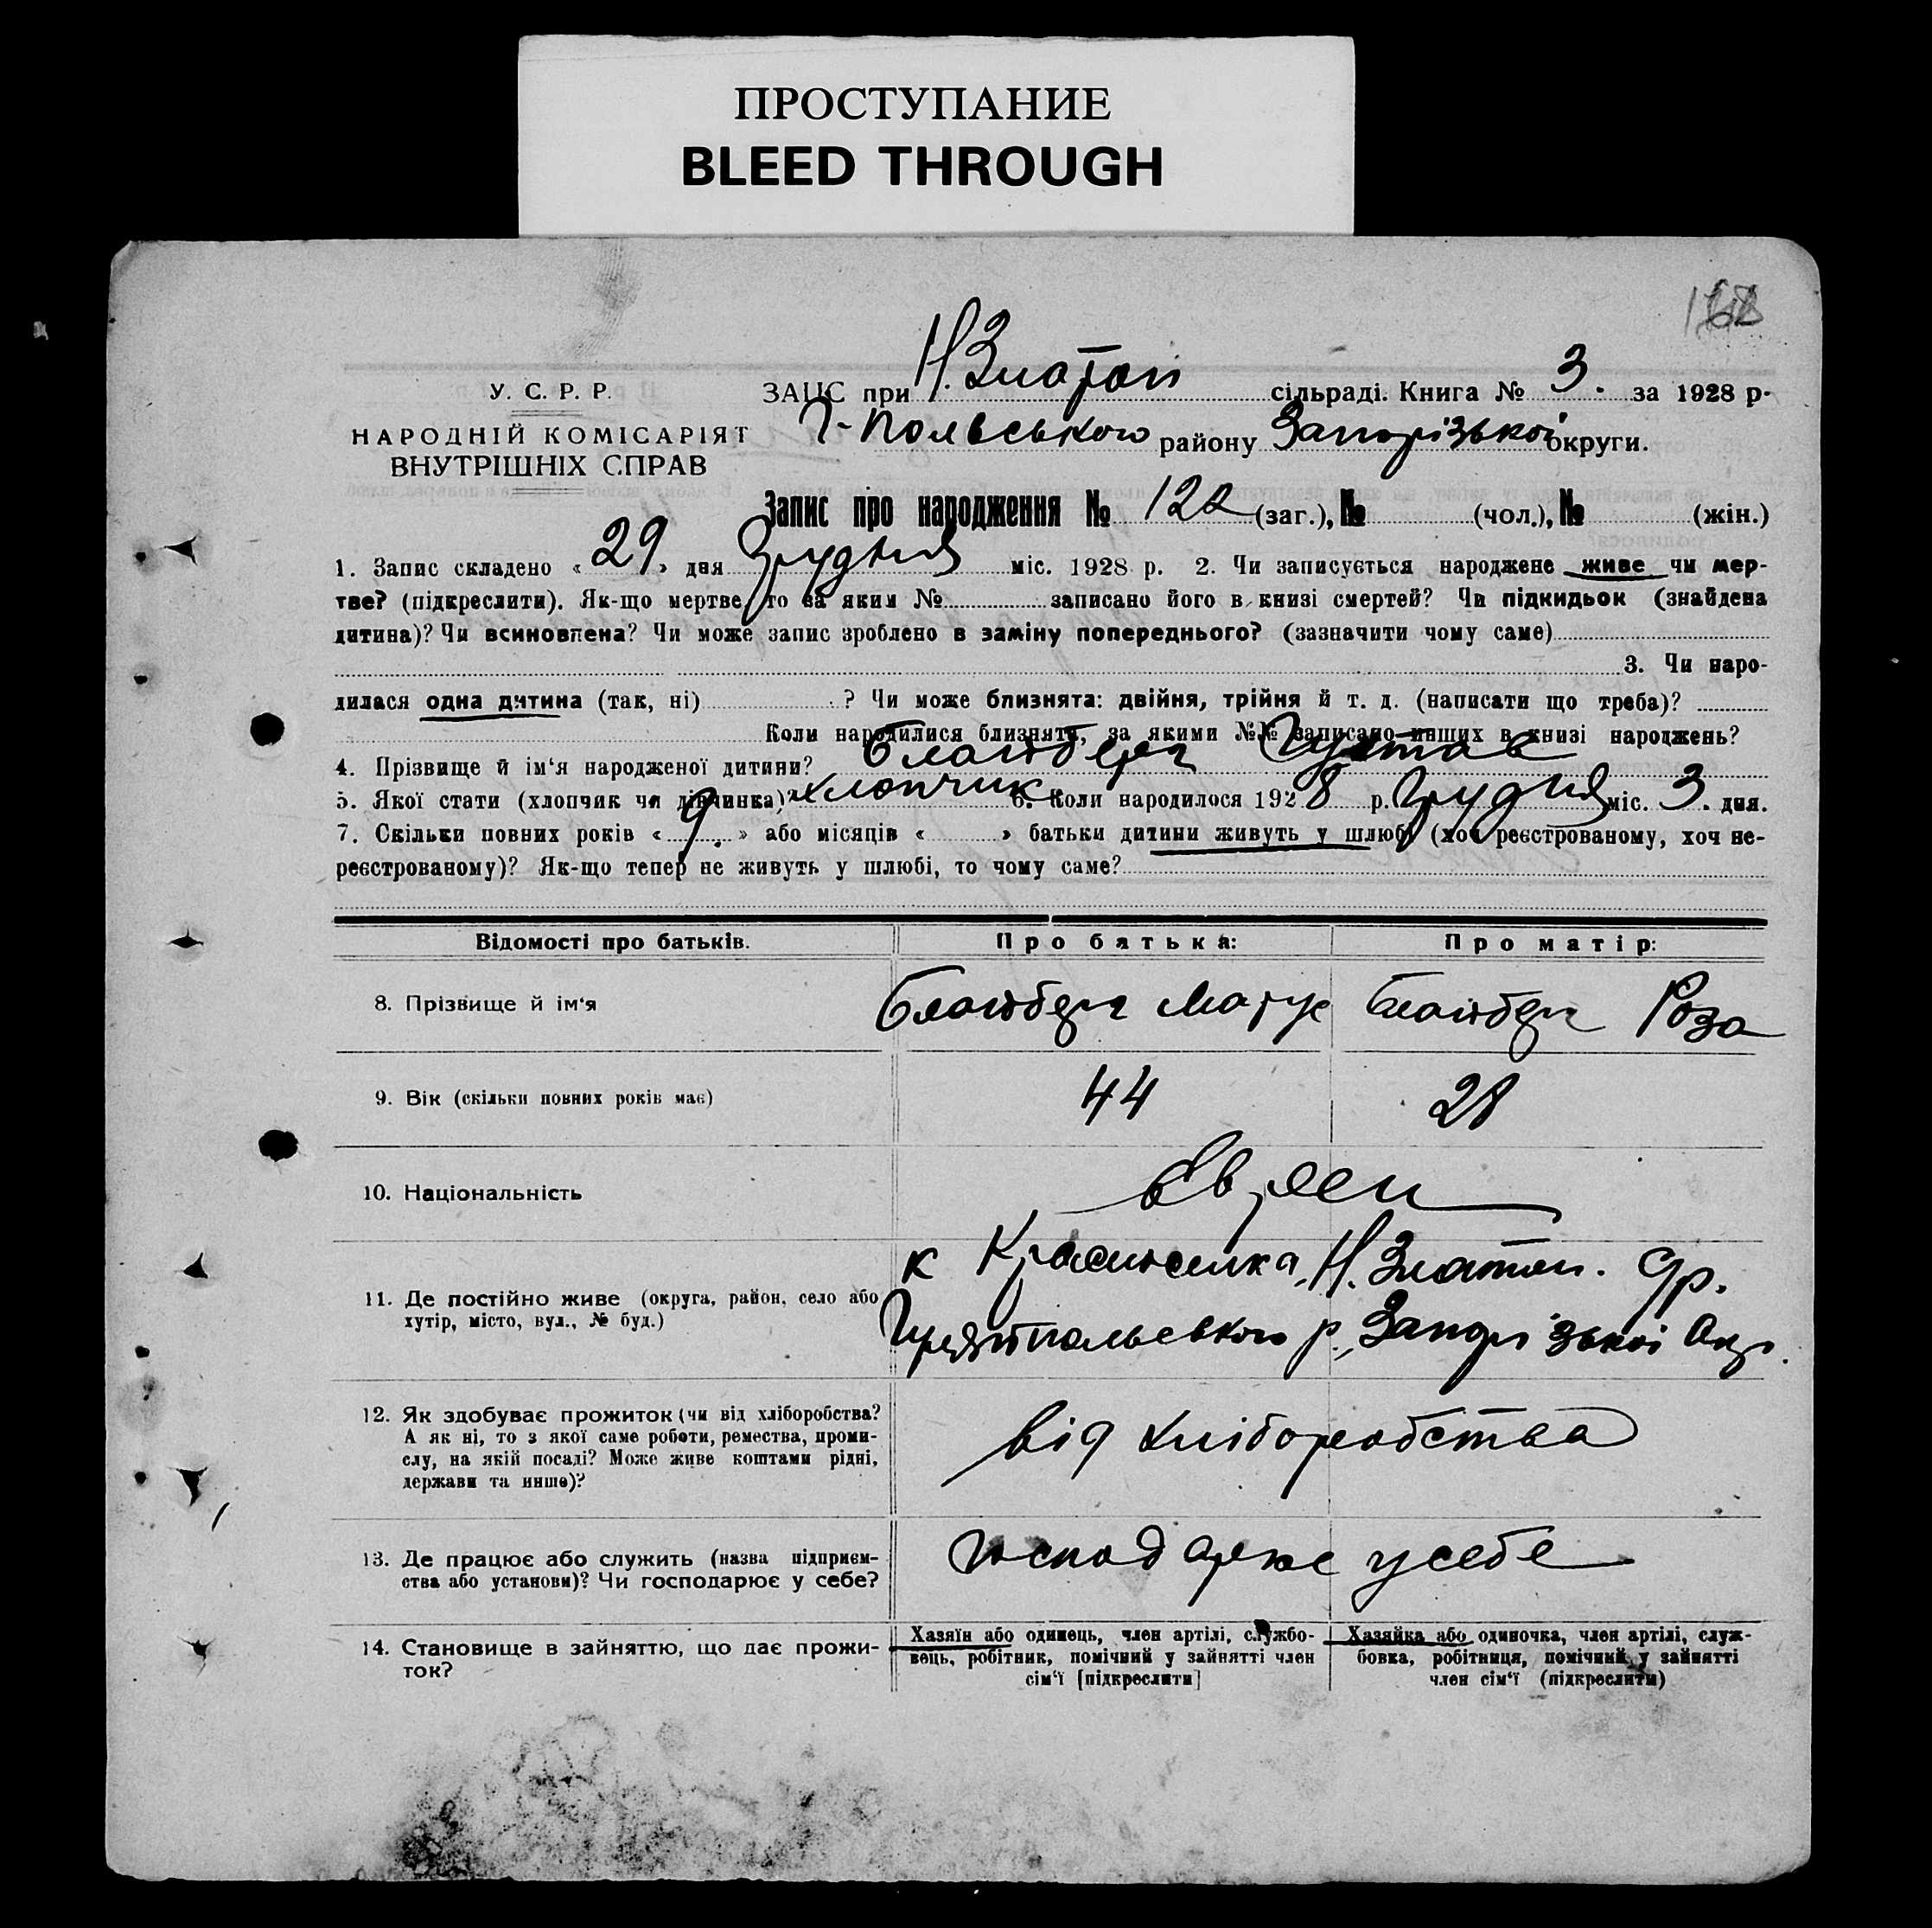 ПРОСТУПАНИЕ
BLEED THROUGH
168
У. С. Р. Р.
НАРОДНІЙ КОМІСАРІЯТ
ВНУТРІШНІХ СПРАВ
ЗАЦС при Н. Златоп сільраді. Книга № 3. за 1928 р.
Г-Польського району Запорізької округи.
Запис про народження № 122 (заг.), № (чол.), № (жін.)
1. Запис складено « 29 » дня Грудня міс. 1928 р. 2. Чи записується народжене живе чи мер-
тве? (підкреслити). Як-що мертве, то за яким № записано його в книзі смертей? Чи підкидьок (знайдена
дитина)? Чи всиновлена? Чи може запис зроблено в заміну попереднього? (зазначити чому саме)
3. Чи наро-
дилася одна дитина (так, ні) ? Чи може близнята: двійня, трійня й т. д. (написати що треба)?
Коли народилися близнята, за якими №№ записано инших в книзі народжень?
4. Прізвище й ім‘я народженої дитини? Блаюберг Густав
5. Якої стати (хлопчик чи дівчинка)? хлопчик 6. Коли народилося 1928 р. Грудня міс. 3. дня.
7. Скільки повних років « 9. » або місяців « » батьки дитини живуть у шлюбі (хоч реєстрованому, хоч не-
реєстрованому)? Як-що тепер не живуть у шлюбі, то чому саме?
Відомості про батьків. Про батька: Про матір:
8. Прізвище й ім‘я Блаюберг Маркус Блаюберг Роза
9. Вік (скільки повних років має) 44 28
10. Національність Євреи
11. Де постійно живе (округа, район, село або
хутір, місто, вул., № буд.)
к Красиоселка, Н. Златоп. с/р.
Гуляйпольського р., Запорізької Окр.
12. Як здобуває прожиток (чи від хліборобства?
А як ні, то з якої саме роботи, ремества, проми-
слу, на якій посаді? Може живе коштами рідні,
держави та инше)?
від хліборобства
13. Де працює або служить (назва підприєм-
ства або установи)? Чи господарює у себе?
господарює у себе
14. Становище в зайняттю, що дає прожи-
ток?
Хазяїн або одинець, член артілі, службо-
вець, робітник, помічний у зайнятті член
сім‘ї [підкреслити]
Хазяйка або одиночка, член артілі, служ-
бовка, робітниця, помічний у зайнятті
член сім‘ї (підкреслити)